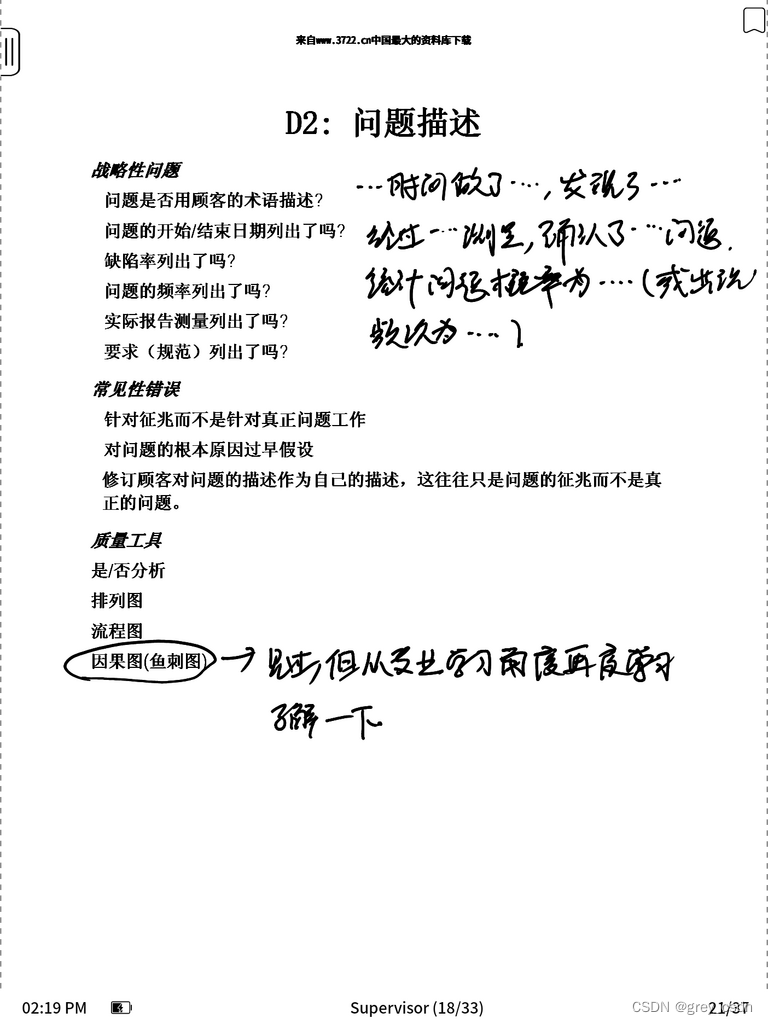 来自www.3722.cn中国最大的资料库下载
D2: 问题描述
战略性问题
问题是否用顾客的术语描述?
····时间做了····,发现了····
问题的开始/结束日期列出了吗?
经过····测试,确认了····问题.
缺陷率列出了吗?
问题的频率列出了吗?
统计问题概率为····(或出现
实际报告测量列出了吗?
数次为····).
要求（规范）列出了吗?
常见性错误
针对征兆而不是针对真正问题工作
对问题的根本原因过早假设
修订顾客对问题的描述作为自己的描述，这往往只是问题的征兆而不是真
正的问题。
质量工具
是/否分析
排列图
流程图
因果图(鱼刺图)
见过,但从专业学习角度再度学习
了解一下.
02:19 PM
Supervisor (18/33)
21/37
CSDN @grey_csdn